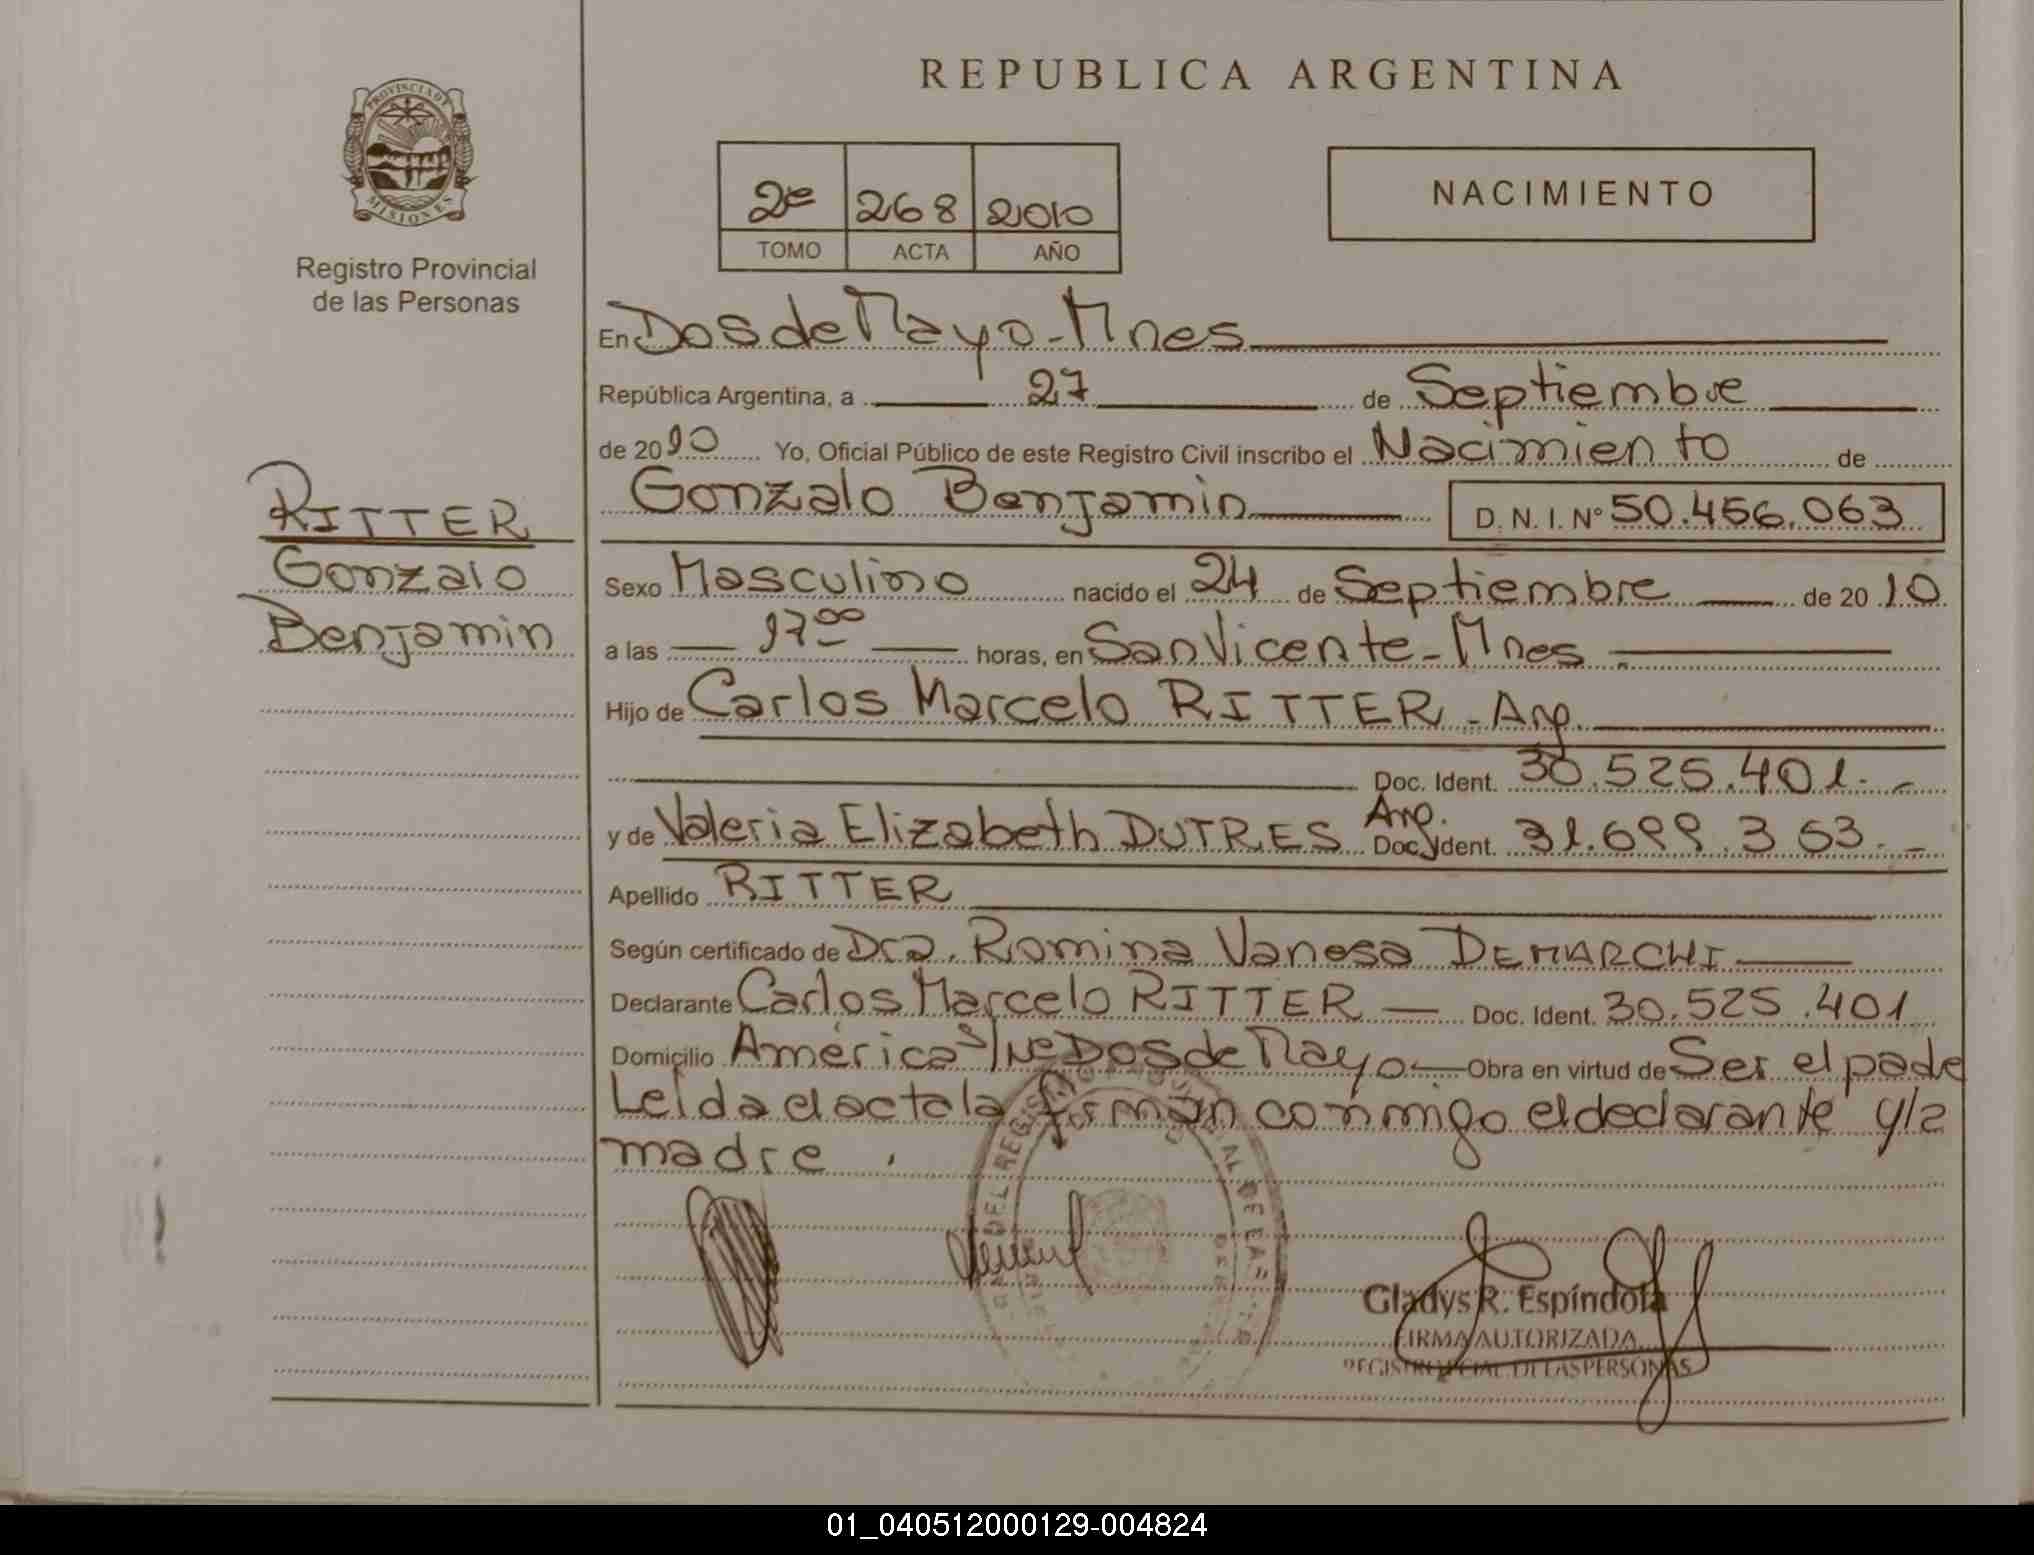 REPUBLICA ARGENTINA
PROVINCIA DE
MISIONES
Registro Provincial
de las Personas
2º 268 2010
TOMO ACTA AÑO
NACIMIENTO
RITTER
Gonzalo
Benjamin
En Dos de Mayo - Mnes
República Argentina, a 27 de Septiembre
de 2010 Yo, Oficial Público de este Registro Civil inscribo el Nacimiento de
Gonzalo Benjamin D. N. I. Nº 50.456.063
Sexo Masculino nacido el 24 de Septiembre de 2010
a las 17 00 horas, en San Vicente - Mnes
Hijo de Carlos Marcelo RITTER - Arg.
Doc. Ident. 30.525.401.-
y de Valeria Elizabeth DUTRES Arg. Doc. Ident. 31.699.363.-
Apellido RITTER
Según certificado de Dra. Romina Vanesa DEMARCHI
Declarante Carlos Marcelo RITTER Doc. Ident. 30.525.401
Domicilio América S/Nº Dos de Mayo Obra en virtud de Ser el padre
Leída el acta la firman conmigo el declarante y la
madre.
Gladys R. Espíndola
FIRMA AUTORIZADA
REGISTRO PCIAL. DE LAS PERSONAS
01_040512000129-004824